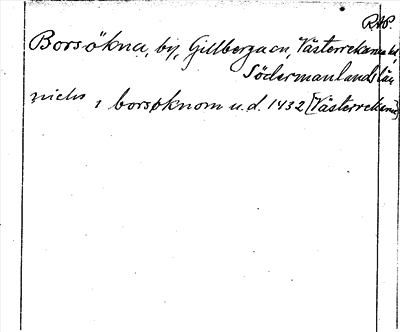 RAP.
Borsökna, by, Gillberga sn, Västerrekarne hd,
Södermanlands län
nichs i borsøknom u.d. 1432 [Västerrekarne]